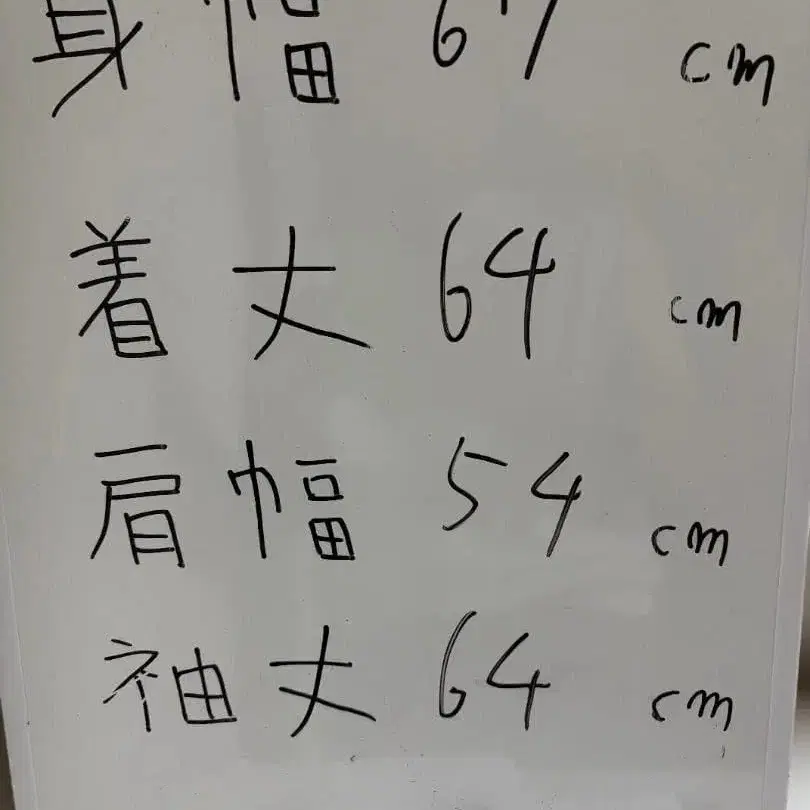 身幅 67 cm
着丈 64 cm
肩幅 54 cm
袖丈 64 cm